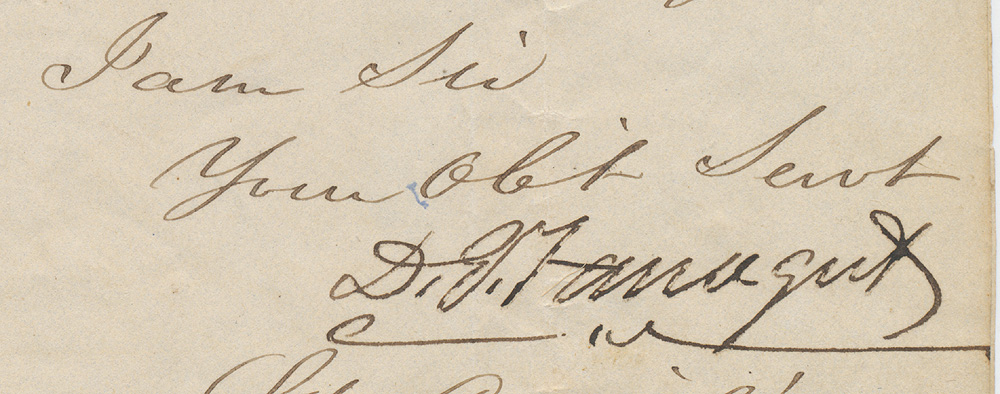 I am Sir
Your Obt Servt
D. G. Farragut